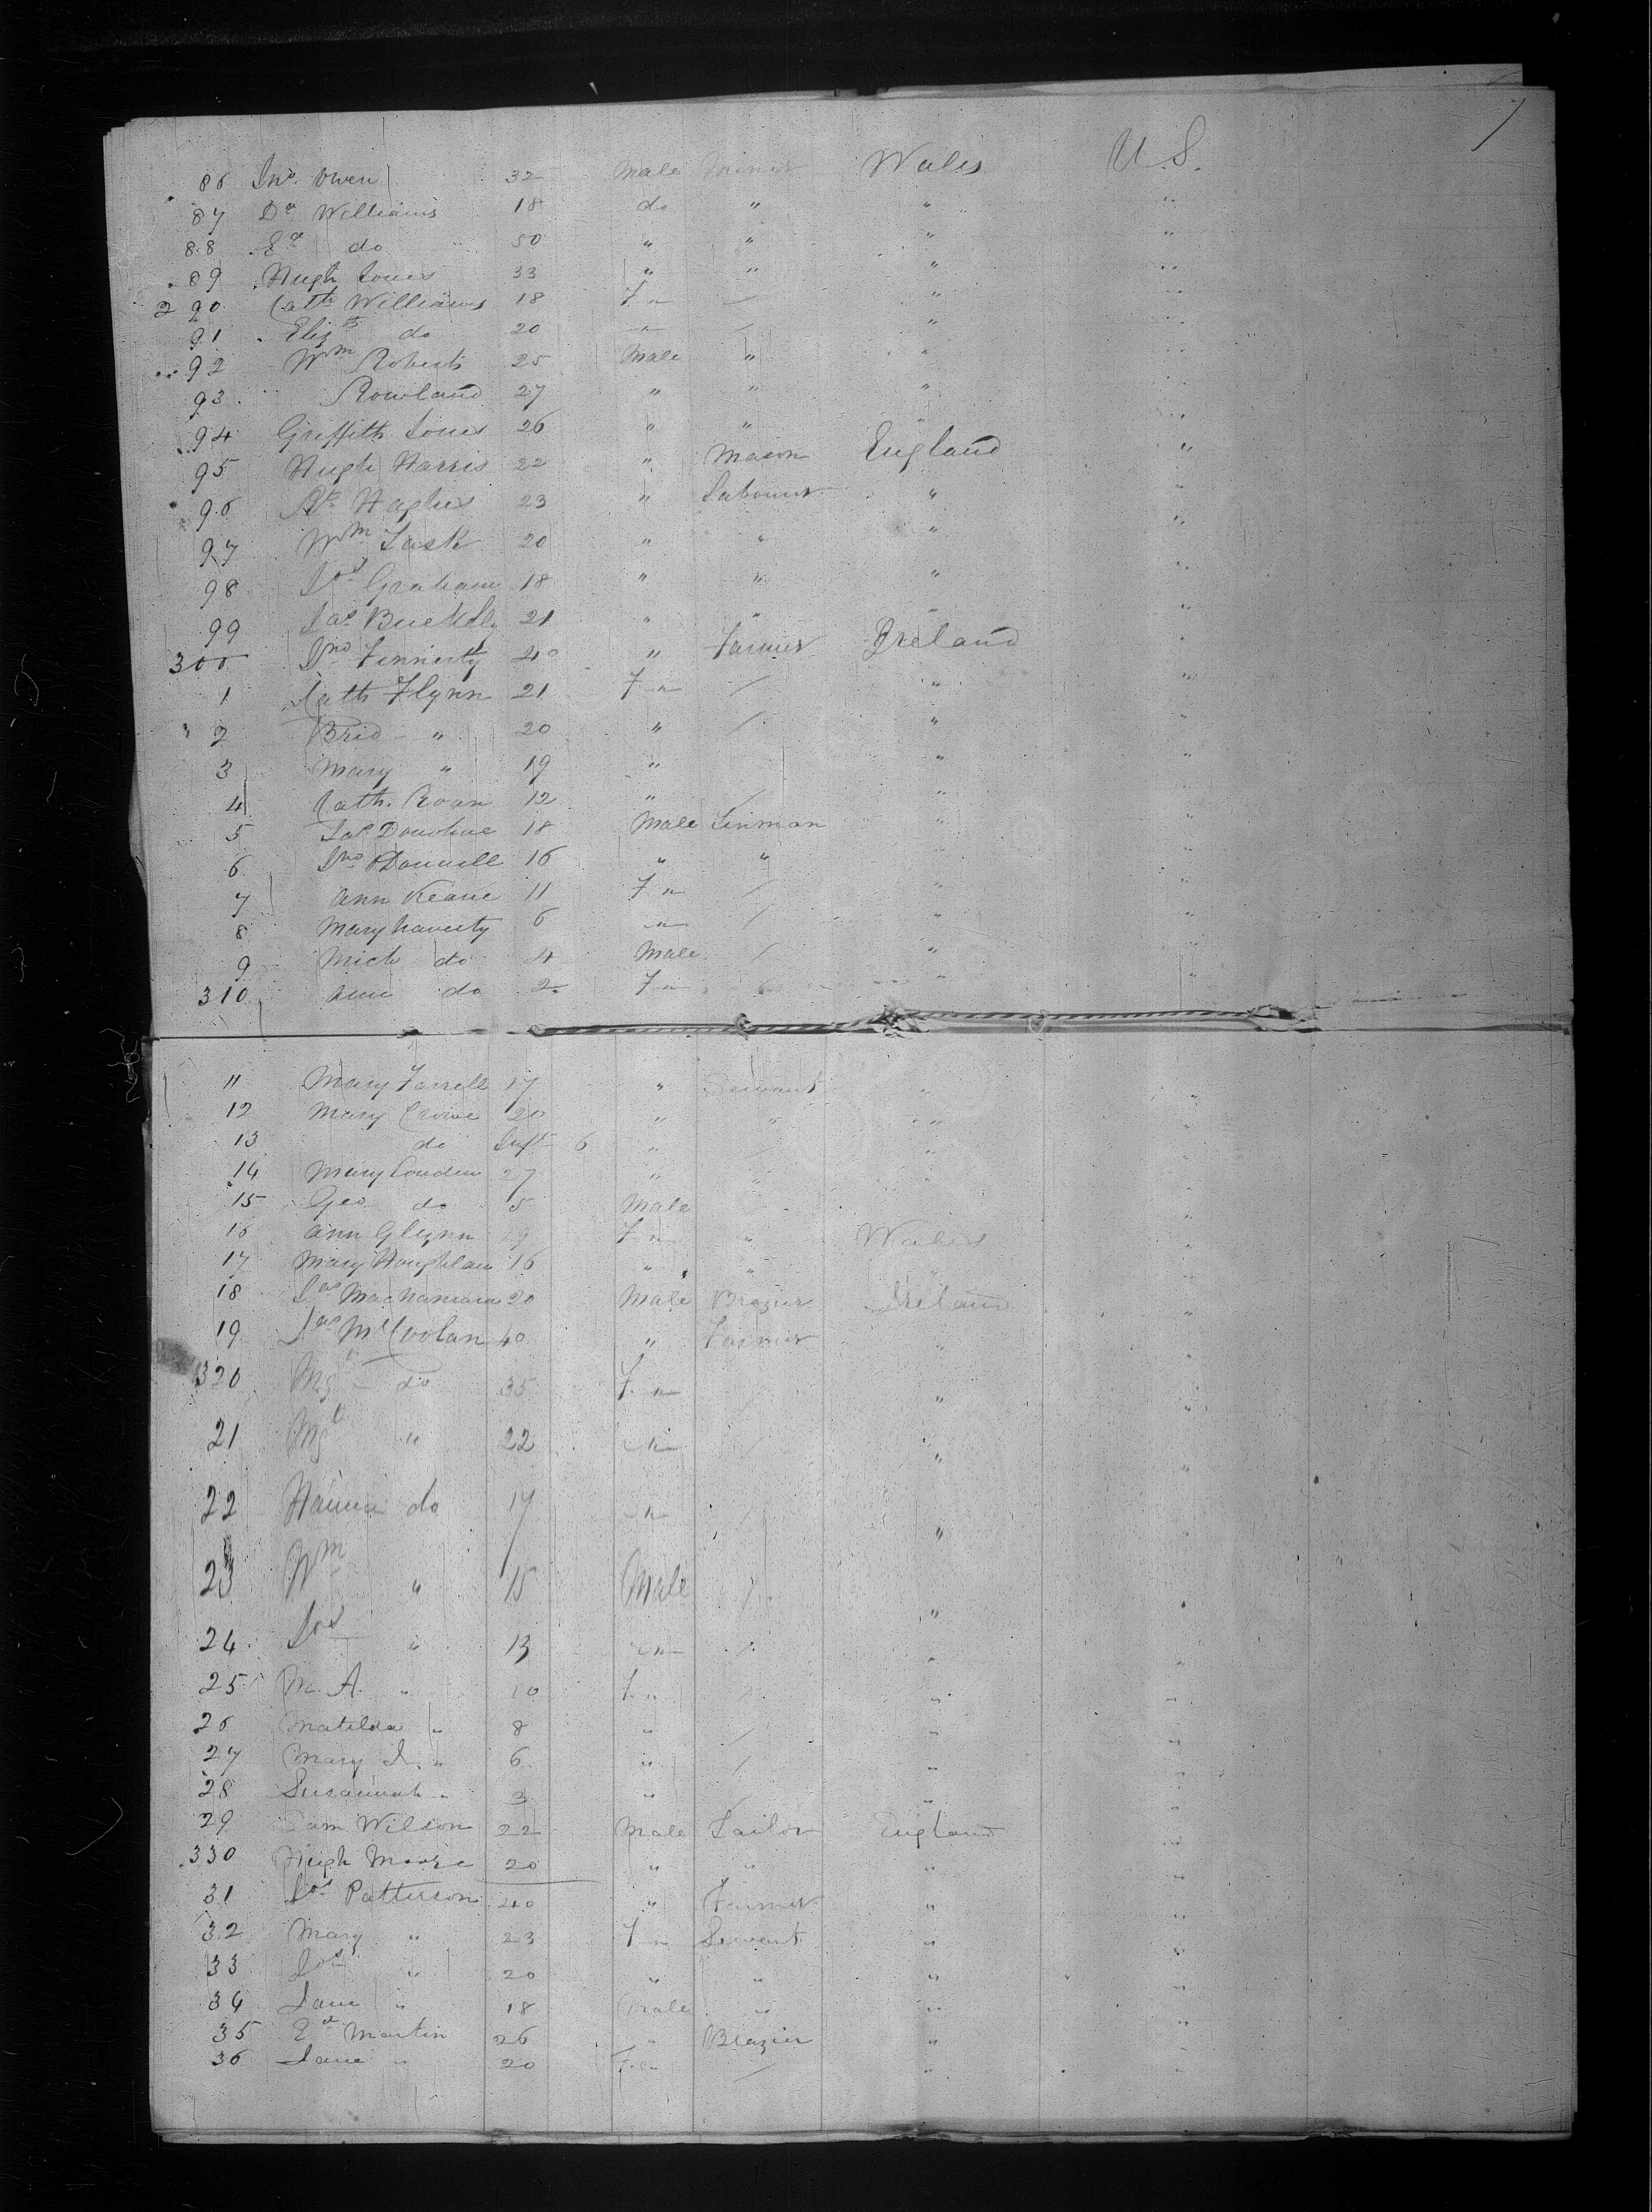 7
86 Jno. Owen 32 Male Miner Wales U.S.
87 Dd Williams 18 do " " "
88 Ed do 50 " " " "
89 Hugh Jones 33 " " " "
290 Cath Williams 18 F " / " "
91 Elizth do 20 " / " "
92 Wm Roberts 25 Male " " "
93 Rowland 27 " " " "
94 Griffith Jones 26 " " " "
95 Hugh Harris 22 " Mason England "
96 Hughes 23 " Labourer " "
97 Wm 20 " " " "
98 Jos Graham 18 " " " "
99 Jas Buckley 21 " " " "
300 Jno Finnerty 40 " Farmer Ireland "
1 Cath Flynn 21 F " / " "
2 Brid " 20 " / " "
3 Mary " 19 " " "
4 Cath. Roan 12 " / " "
5 Jas Donohue 18 Male " "
6 Jno ODonnell 16 " " " "
7 Ann Keane 11 F " / " "
8 Mary haverty 6 " / " "
9 Mich do 4 Male / " "
310 Ann do 2 F " / " "
11 Mary Farrell 17 " Servant " "
12 Mary Crowe 20 " " " "
13 do Inft 6 " / " "
14 Mary 27 " " " "
15 Geo do 5 Male "
16 Ann Glynn 19 F " " Wales "
17 Mary 16 " " " "
18 Jas Macnamara 20 Male Brazier Ireland "
19 Jas McCoolan 40 " Farmer " "
320 Mgt do 35 F. " " "
21 Mgt " 22 " / " "
22 do 17 " / " "
23 Wm " 15 Male / " "
24 Jos " 13 " / " "
25 M. A. " 10 F. " / " "
26 Matilda " 8 " / " "
27 Mary J. " 6 " / " "
28 Susannah " 3 " / " "
29 Sam Wilson 22 Male Tailor England "
330 Hugh Moore 20 " " " "
31 Jos Patterson 40 " Farmer " "
32 Mary " 23 F " Servant " "
33 Jos " 20 " " " "
34 Jane " 18 Male " " "
35 Ed Martin 26 " Brazier " "
36 Jane " 20 F " / " "